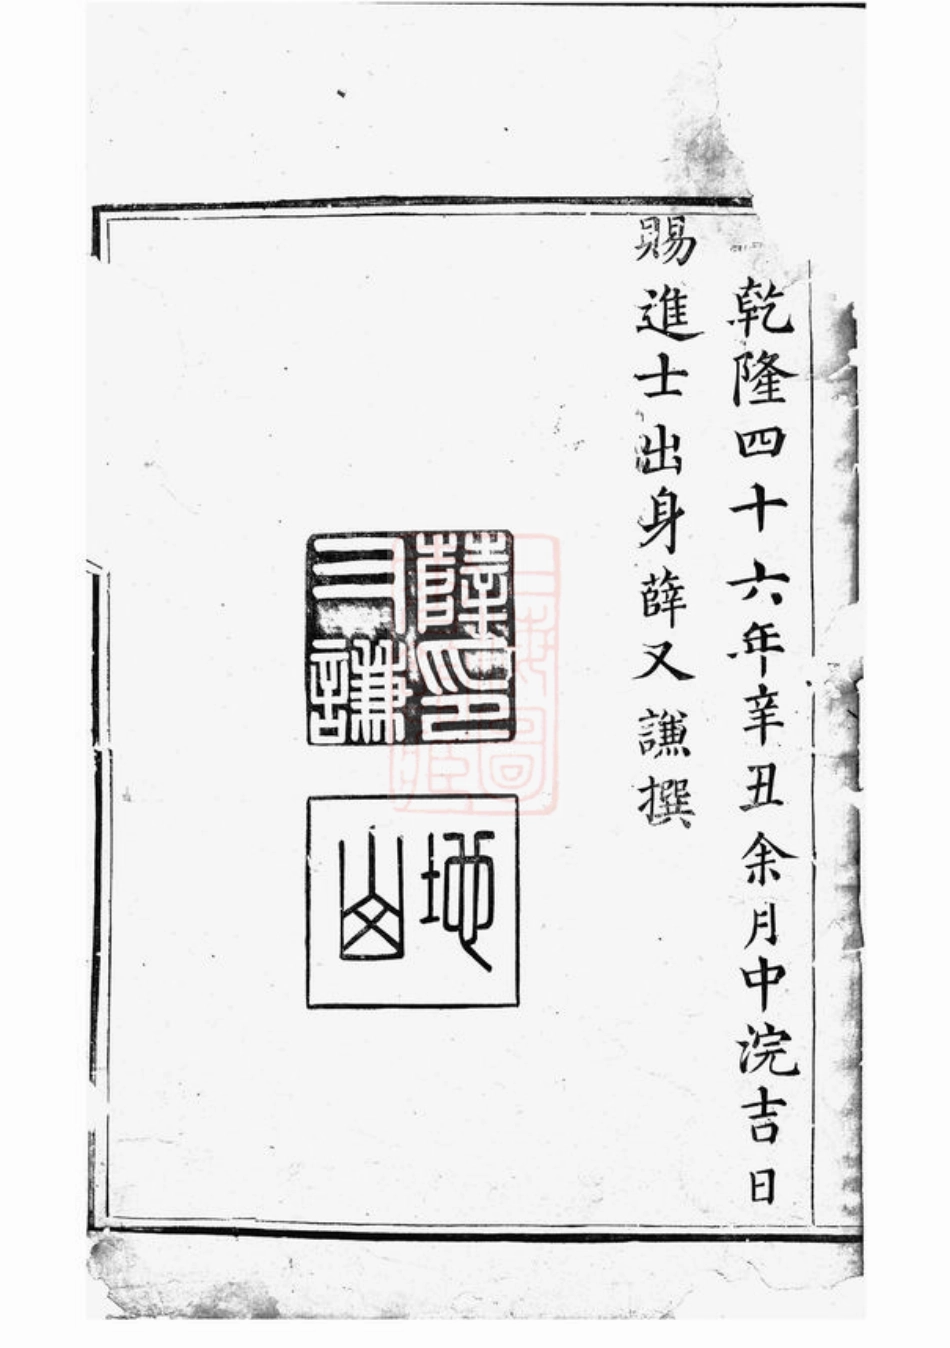 乾隆四十六年辛丑余月中浣吉日
賜進士出身薛又謙撰
薛印
又謙
地山